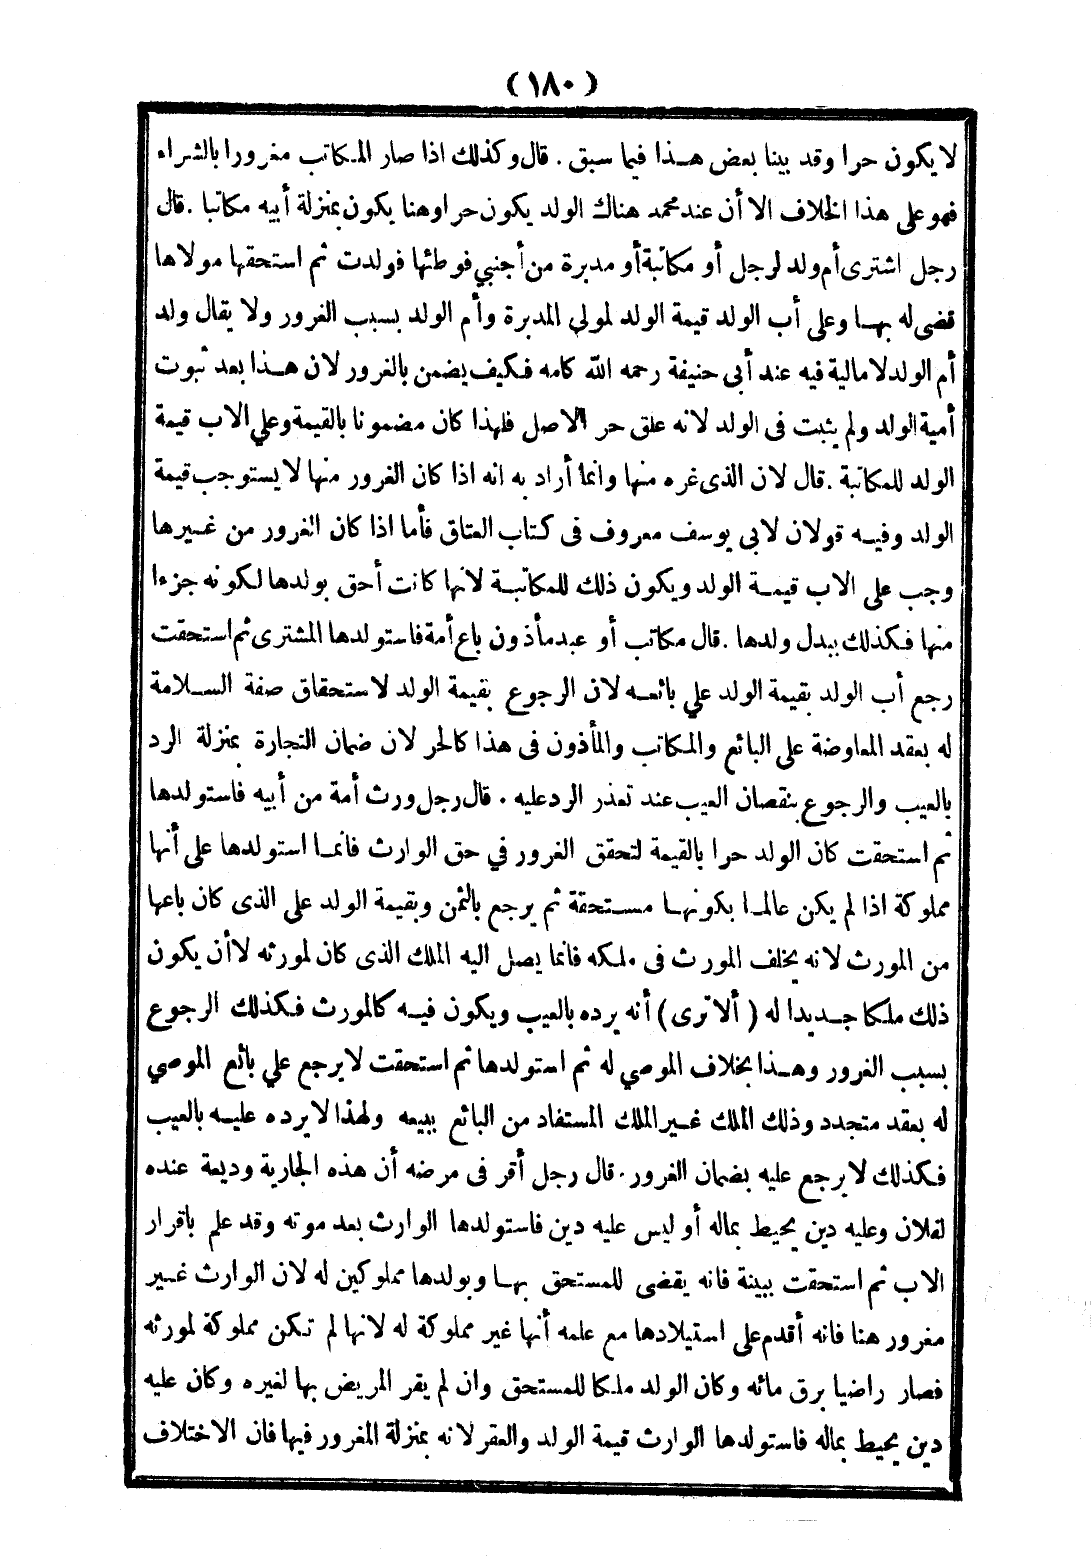 (١٨٠)
لا يكون حرا وقد بينا بعض هـذا فيما سبق . قال وكذلك اذا صار المكاتب مغرورا بالشراء
فهو على هذا الخلاف الا أن عند محمد هناك الولد يكون حرا وهنا يكون بمنزلة أبيه مكاتبا . قال
رجل اشترى أم ولد لرجل أو مكاتبة أو مدبرة من أجنبي فوطئها فولدت ثم استحقها مولاها
قضى له بهـا وعلى أب الولد قيمة الولد لمولى المدبرة وأم الولد بسبب الغرور ولا يقال ولد
أم الولد لا مالية فيه عند أبى حنيفة رحمه الله كامه فكيف يضمن بالغرور لان هـذا بعد ثبوت
أمية الولد ولم يثبت فى الولد لانه علق حر الاصل فلهذا كان مضمونا بالقيمة وعلي الاب قيمة
الولد للمكاتبة . قال لان الذى غره منها وانما أراد به انه اذا كان الغرور منها لا يستوجب قيمة
الولد وفيـه قولان لابي يوسف معروف فى كتاب العتاق فأما اذا كان الغرور من غـيرها
وجب على الاب قيمـة الولد ويكون ذلك للمكاتبـة لانها كانت أحق بولدها لكونه جزءا
منها فكذلك ببدل ولدها . قال مكاتب أو عبد مأذون باع أمة فاستولدها المشترى ثم استحقت
رجع أب الولد بقيمة الولد علي بائعـه لان الرجوع بقيمة الولد لاستحقاق صفة السـلامة
له بعقد المعاوضة على البائع والمكاتب والمأذون فى هذا كالحر لان ضمان التجارة بمنزلة الرد
بالعيب والرجوع بنقصان العيب عند تعذر الرد عليه . قال رجل ورث أمة من أبيه فاستولدها
ثم استحقت كان الولد حرا بالقيمة لتحقق الغرور في حق الوارث فانمـا استولدها على أنها
مملوكة اذا لم يكن عالمـا بكونهـا مسـتحقة ثم يرجع بالثمن وبقيمة الولد على الذى كان باعها
من المورث لانه يخلف المورث فى ملكه فانما يصل اليه الملك الذى كان لمورثه لا أن يكون
ذلك ملكا جـديدا له ( ألا ترى ) أنه يرده بالعيب ويكون فيـه كالمورث فكذلك الرجوع
بسبب الغرور وهـذا بخلاف الموصي له ثم استولدها ثم استحقت لا يرجع علي بائع الموصي
له بعقد متجدد وذلك الملك غـير الملك المستفاد من البائع ببيعه ولهذا لا يرده عليـه بالعيب
فكذلك لا يرجع عليه بضمان الغرور . قال رجل أقر فى مرضه أن هذه الجارية وديعة عنده
لفلان وعليه دين يحيط بماله أو ليس عليه دين فاستولدها الوارث بعد موته وقد علم باقرار
الاب ثم استحقت ببينة فانه يقضى للمستحق بهـا وبولدها مملوكين له لان الوارث غـير
مغرور هنا فانه أقدم على استيلادها مع علمه أنها غير مملوكة له لانها لم تكن مملوكة لمورثه
فصار راضيا برق مائه وكان الولد ملكا للمستحق وان لم يقر المريض بها لغيره وكان عليه
دين يحيط بماله فاستولدها الوارث قيمة الولد والعقر لانه بمنزلة المغرور فيها فان الاختلاف